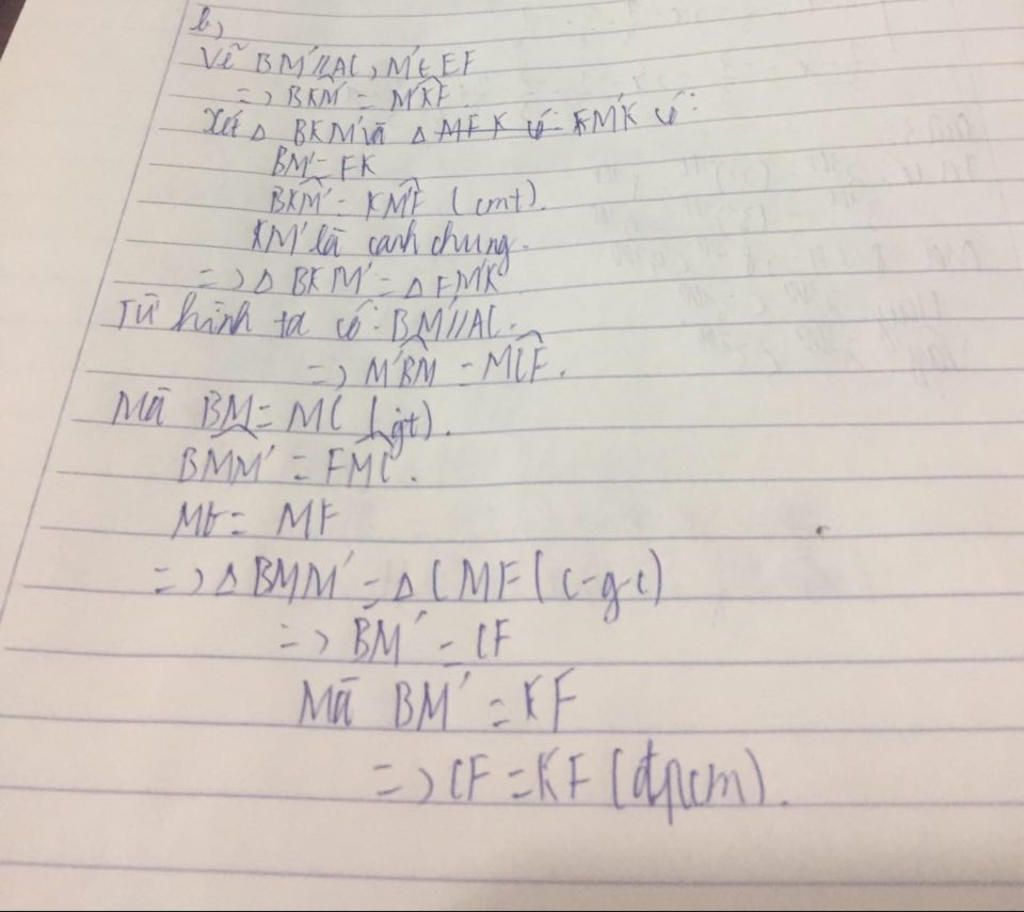 b,
Vẽ BM'//AC, M' ∈ EF
=> BKM' = M'KF
Xét Δ BKM' và Δ MFK có: FM'K có:
BM' = FK
BKM' = KM'F (cmt).
KM' là cạnh chung.
=> Δ BKM' = Δ FM'K
Từ hình ta có: BM'//AC.
=> M'BM = MCF.
Mà BM = MC (gt).
BMM' = FMC.
ME = MF
=> Δ BMM' = Δ CMF (c-g-c)
=> BM' = CF
Mà BM' = KF
=> CF = KF (đpcm).